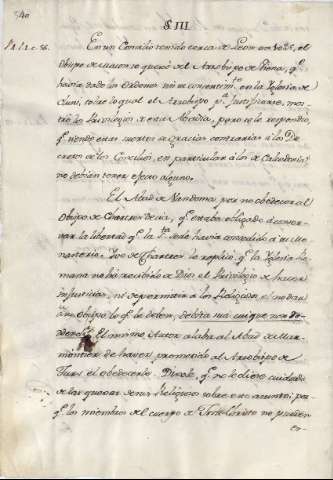 540
§ III
En un Concilio tenido cerca de Leon en 1025, el
Obispo de Macon se quexó de el Arzobispo de Viena, q.e
havia dado las Ordenes sin su consentim.to en la Iglesia de
Cluni, sobre lo qual el Arzobispo p.a Justificarse, mos-
tró los Privilegios de esta Abadia, pero se le respondio,
q.e siendo estas suertes de Gracias contrarias á los De-
cretos de los Concilios, en particular á los de Calcedonia,
no debian tener efecto alguno.
El Abad de Vendoma por no obedecer al
Obispo de Chartres decia, q.e estaba obligado á conser-
var la libertad q.e la S.ta Sede havia concedido á su Mo-
nasterio. Ivo de Chartres le replica q.e la Iglesia Ro-
mana no ha recibido de Dios el Privilegio de hacer
injusticias, ni de permitir á los Religiosos el no dar á
su Obispo lo q.e le deben, debita sua cuique non re-
dendi. El mismo Autor alaba al Abad de Mar-
moutier de haver prometido al Arzobispo de
Turs el obedecerle. Dicele, q.e no le diese cuidado
de las quexas de sus Religiosos sobre este asunto; por-
q.e los miembros de el cuerpo de Jesu-Christo no pueden
es-